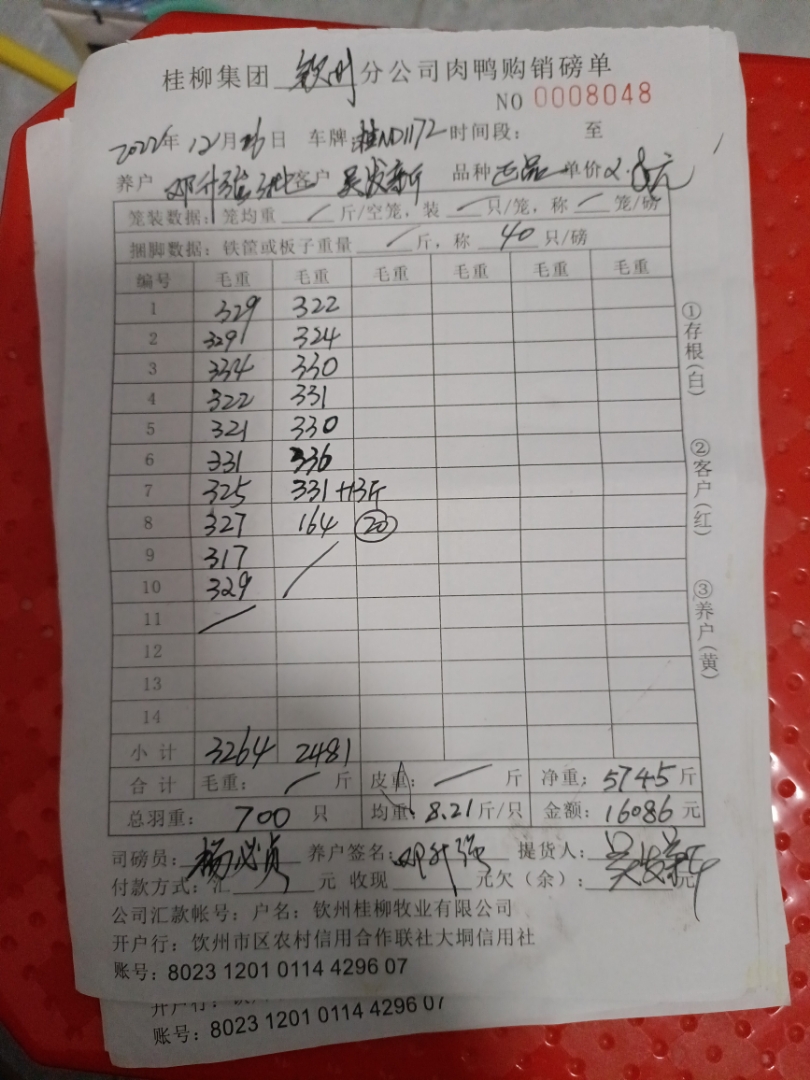 桂柳集团 钦州 分公司肉鸭购销磅单
NO 0008048
2022年 12月26日 车牌:桂ND1172 时间段: 至
养户 邓升强 客户 品种 正品 单价 2.8元
笼装数据:笼均重 / 斤/空笼,装 / 只/笼,称 / 笼/磅
捆脚数据:铁筐或板子重量 / 斤,称 40 只/磅
编号 毛重 毛重 毛重 毛重 毛重 毛重
1 329 322
2 329 324
3 334 330
4 322 331
5 321 330
6 331 336
7 325 331 +13斤
8 327 164 20
9 317 /
10 329
11 /
12
13
14
小计 3264 2481
合计 毛重: / 斤 皮重: / 斤 净重: 5745 斤
总羽重: 700 只 均重: 8.21 斤/只 金额: 16086 元
司磅员: 杨必贞 养户签名: 邓升强 提货人:
付款方式:汇 元 收现 元欠(余): 元
公司汇款帐号:户名:钦州桂柳牧业有限公司
开户行:钦州市区农村信用合作联社大垌信用社
账号:8023 1201 0114 4296 07
开户行:
账号:8023 1201 0114 4296 07
①存根(白)
②客户(红)
③养户(黄)